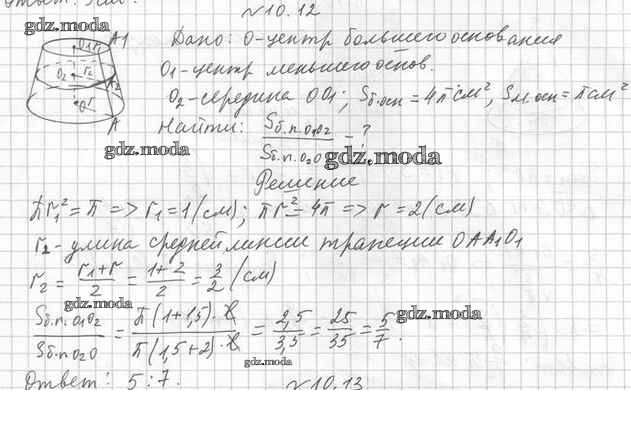 Ответ:
№10.12
gdz.moda
Дано: O-центр большего основания
O1-центр меньшего основ.
O2-середина OO1; Sб.осн = 4π см², Sм.осн = π см²
Найти: Sб.п.O1O2 / Sб.п.O2O - ?
gdz.moda gdz.moda
Решение
πr₁² = π => r₁ = 1 (см); πr² = 4π => r = 2 (см)
r₂ - длина средней линии трапеции OAA1O1
r₂ = (r₁ + r)/2 = (1+2)/2 = 3/2 (см)
gdz.moda gdz.moda
Sб.п.O1O2 / Sб.п.O2O = π(1+1,5)·ℓ / π(1,5+2)·ℓ = 2,5/3,5 = 25/35 = 5/7.
gdz.moda
Ответ: 5:7.
№10.13
O1 r1 A1
O2 r2 A2
O r
A